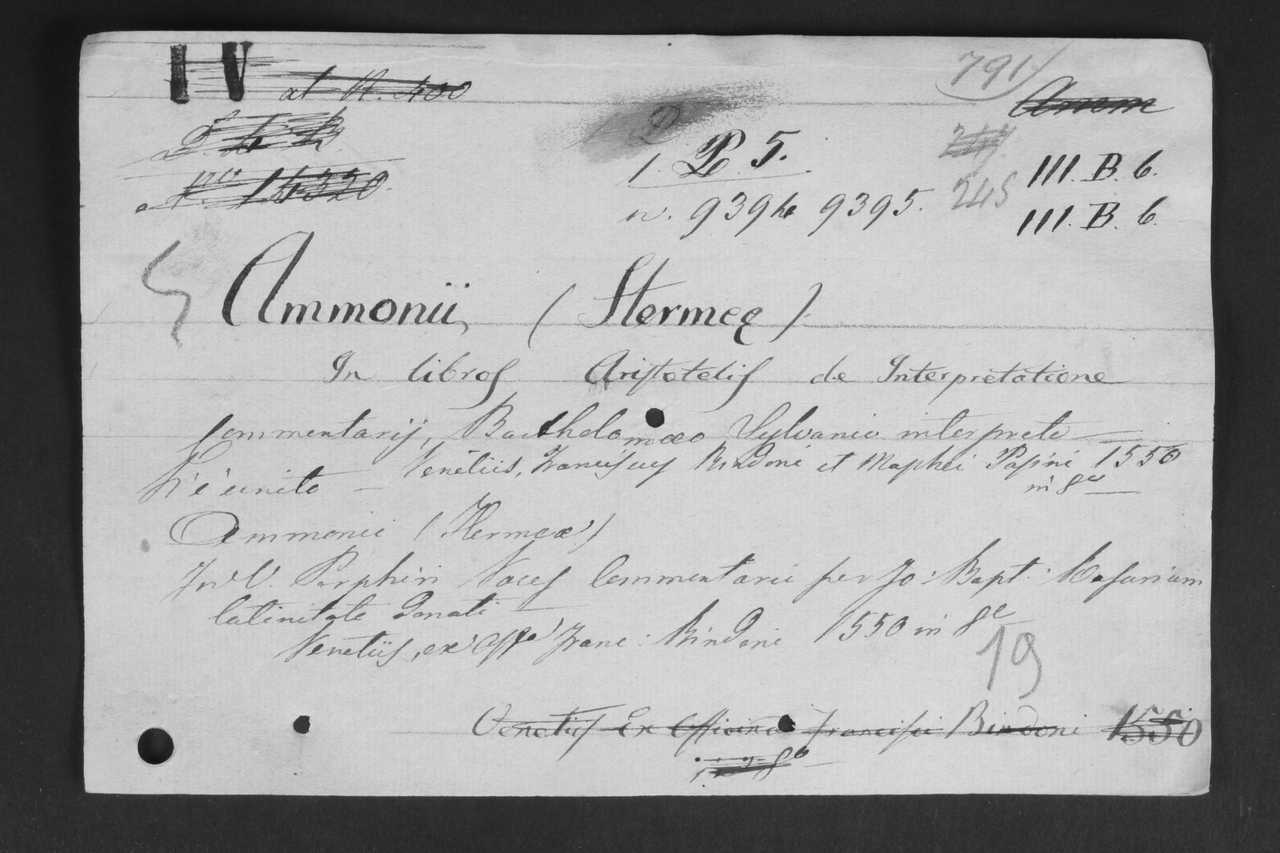 IV at H. 400
791
Amm
P.
n.º 14320
1. P. 5.
247
245
III. B. 6.
n. 9394 9395.
III. B. 6.
Ammonii, (Hermeę)
In libros Aristotelis de Interpretatione
Commentarij, Barthelomæo Sylvanio interprete
Venetiis, Franciscus Bindoni et Maphei Pasini 1550
in 8º
Vi è unito —
Ammonii (Hermeæ)
In V. Porphirii Voces Commentarii per Jo: Bapt: Rasarium
latinitate donati
Venetiis, ex offª Franc: Bindoni 1550 in 8º
19
Venetiis Ex Officina Francisci Bindoni 1550
in 8º